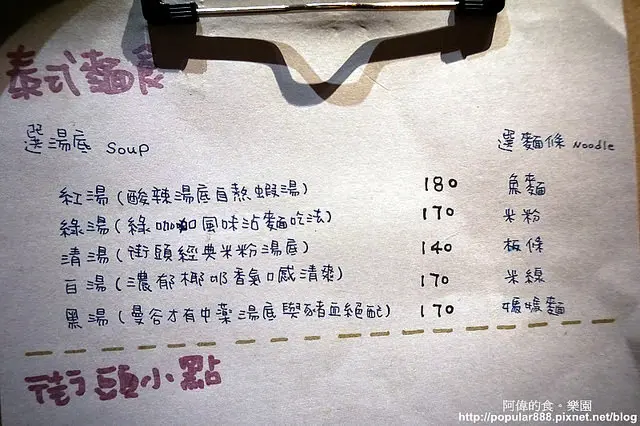 泰式麵食
選湯底 Soup 選麵條 Noodle
紅湯(酸辣湯底自熬蝦湯) 180 魚麵
綠湯(綠咖哩風味沾麵吃法) 170 米粉
清湯(街頭經典米粉湯底) 140 板條
白湯(濃郁椰奶香氣口感清爽) 170 米線
黑湯(曼谷才有中藥湯底與豬血絕配) 170 媽媽麵
街頭小點
阿偉的食。樂園
http://popular888.pixnet.net/blog